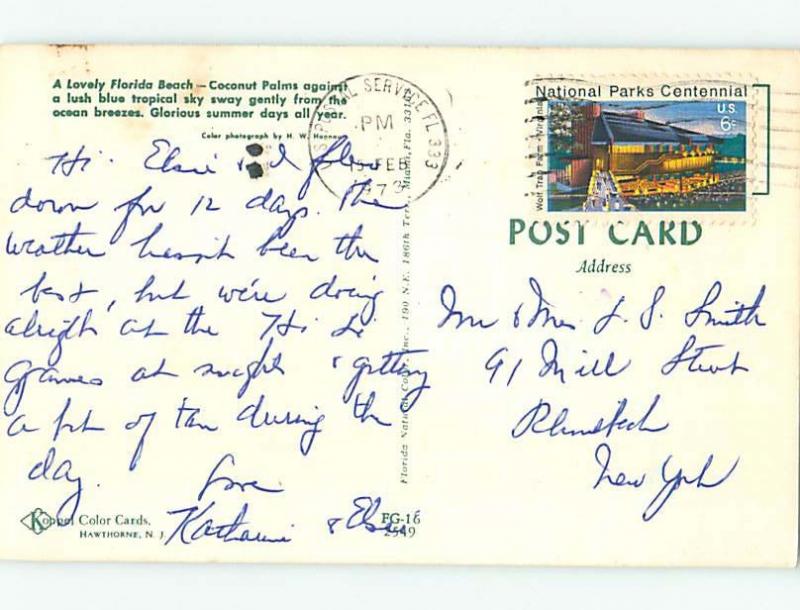 A Lovely Florida Beach — Coconut Palms against
a lush blue tropical sky sway gently from the
ocean breezes. Glorious summer days all year.
Color photograph by H. W. Hannau
Hi. Elsie & I flew
down for 12 days. The
weather hasn't been the
best, but we're doing
alright at the Hi Li
games at night & getting
a bit of tan during the
day.
Love
Katharine & Elsie
Koppel Color Cards,
HAWTHORNE, N. J.
FG-16
2549
Florida Natural Color, Inc., 190 N.E. 186th Terr., Miami, Fla. 33162
POSTAL SERVICE, FL 333
PM
FEB
1973
National Parks Centennial
U.S.
6c
Wolf Trap Farm - Virginia
POST CARD
Address
Mr & Mrs L. S. Smith
91 Mill Street
Rhinebeck
New York